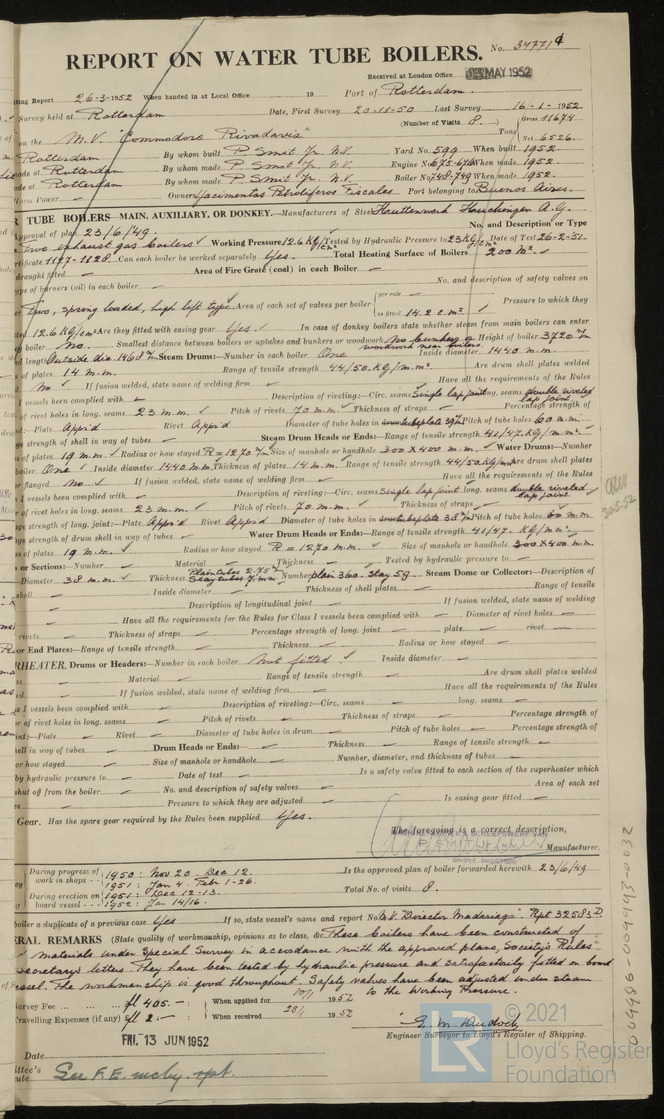 REPORT ON WATER TUBE BOILERS. No. 34771
Received at London Office 13 MAY 1952
ting Report 26-3-1952 When handed in at Local Office 19 Port of Rotterdam.
Survey held at Rotterdam Date, First Survey 20-11-50 Last Survey 16-1-1952
(Number of Visits 8.)
on the M.V. "Commodoro Rivadavia" Tons Gross 11674 Net 6526.
Rotterdam By whom built P. Smit Jr. N.V. Yard No. 599 When built 1952
made at Rotterdam By whom made P. Smit Jr. N.V. Engine No. 675-676 When made 1952
made at Rotterdam By whom made P. Smit Jr. N.V. Boiler No. 748-749 When made 1952.
Horse Power Owners Yacimentos Petroliferos Fiscales Port belonging to Buenos Aires.
R TUBE BOILERS—MAIN, AUXILIARY, OR DONKEY.—Manufacturers of Steel
Approval of plan 23/6/49. No. and Description or Type
Two exhaust gas boilers Working Pressure 12.6 KG/cm² Tested by Hydraulic Pressure to 23 KG/cm² Date of Test 26-2-51
rtificate 1127-1128. Can each boiler be worked separately Yes. Total Heating Surface of Boilers 200 M².
draught fitted Area of Fire Grate (coal) in each Boiler
ype of burners (oil) in each boiler No. and description of safety valves on
Two, spring loaded, high lift type. Area of each set of valves per boiler per rule as fitted 14.2 c.m² Pressure to which they
ted 12.6 KG/cm² Are they fitted with easing gear Yes. In case of donkey boilers state whether steam from main boilers can enter
boiler No. Smallest distance between boilers or uptakes and bunkers or woodwork No bunkers or woodwork near boilers Height of boiler 3720 m/m
d length Outside dia. 1468 m/m Steam Drums:—Number in each boiler One Inside diameter 1440 m.m.
s of plates 14 m.m. Range of tensile strength 44/50 KG/m.m² Are drum shell plates welded
No If fusion welded, state name of welding firm Have all the requirements of the Rules
I vessels been complied with Description of riveting:—Circ. seams Single lap joint long. seams double riveted lap joint
r of rivet holes in long. seams 23 m.m. Pitch of rivets 70 m.m. Thickness of straps Percentage strength of
:—Plate Appr'd Rivet Appr'd Diameter of tube holes in tubeplate 39 m/m Pitch of tube holes 60 m.m.
ge strength of shell in way of tubes Steam Drum Heads or Ends:—Range of tensile strength 41/47 KG/m.m²
s of plates 19 m.m. Radius or how stayed R = 1270 m/m Size of manhole or handhole 300 x 400 m.m. Water Drums:—Number
boiler One Inside diameter 1440 m.m. Thickness of plates 14 m.m. Range of tensile strength 44/50 KG/m.m² Are drum shell plates
r flanged No If fusion welded, state name of welding firm Have all the requirements of the Rules
I vessels been complied with Description of riveting:—Circ. seams Single lap joint long. seams double riveted lap joint
r of rivet holes in long. seams 23 m.m. Pitch of rivets 70 m.m. Thickness of straps
ge strength of long. joint:—Plate Appr'd Rivet Appr'd Diameter of tube holes in tubeplate 38 m/m Pitch of tube holes 60 m.m
ge strength of drum shell in way of tubes Water Drum Heads or Ends:—Range of tensile strength 41/47. KG/m.m²
s of plates 19 m.m. Radius or how stayed R = 1270 m.m. Size of manhole or handhole 300 x 400 m.m.
s or Sections:—Number Material Thickness Tested by hydraulic pressure to
Diameter 38 m.m. Thickness Plain tubes 2.75 m/m Stay tubes 7. m.m. Number plain 360. Stay 59. Steam Dome or Collector:—Description of
shell Inside diameter Thickness of shell plates Range of tensile
Description of longitudinal joint If fusion welded, state name of welding
Have all the requirements of the Rules for Class I vessels been complied with Diameter of rivet holes
rivets Thickness of straps Percentage strength of long. joint plate rivet
or End Plates:—Range of tensile strength Thickness Radius or how stayed
RHEATER, Drums or Headers:—Number in each boiler Not fitted Inside diameter
s. Material Range of tensile strength Are drum shell plates welded
ed. If fusion welded, state name of welding firm. Have all the requirements of the Rules
s I vessels been complied with Description of riveting:—Circ. seams long. seams
r of rivet holes in long. seams Pitch of rivets Thickness of straps Percentage strength of
int:—Plate Rivet Diameter of tube holes in drum Pitch of tube holes Percentage strength of
hell in way of tubes Drum Heads or Ends:— Thickness Range of tensile strength
or how stayed Size of manhole or handhole Number, diameter, and thickness of tubes
by hydraulic pressure to Date of test Is a safety valve fitted to each section of the superheater which
shut off from the boiler No. and description of safety valves Area of each set
Pressure to which they are adjusted Is easing gear fitted
Gear. Has the spare gear required by the Rules been supplied Yes.
The foregoing is a correct description,
P. SMIT Jr.
Manufacturer.
During progress of work in shops 1950: Nov 20. Dec 12. 1951: Jan 4. Febr 1-26. Is the approved plan of boiler forwarded herewith 23/6/49
During erection on board vessel 1951: Dec 12-13. 1952: Jan 14/16. Total No. of visits 8.
boiler a duplicate of a previous case Yes If so, state vessel's name and report No. M.V. Director Madariaga Rpt 32583 D
RAL REMARKS (State quality of workmanship, opinions as to class, &c. These boilers have been constructed of
materials under Special Survey in accordance with the approved plans, Society's Rules
secretary's letters. They have been tested by hydraulic pressure and satisfactorily fitted on board
essel. The workmanship is good throughout. Safety valves have been adjusted under steam
to the Working Pressure.
Survey Fee fl 405.—: When applied for 1952
Travelling Expenses (if any) fl 2:—: When received 1952
Engineer Surveyor to Lloyd's Register of Shipping.
FRI. 13 JUN 1952
Date
ittee's
ute See F.E. mchy. rpt.
004486-004493-0032
© 2021
LR Lloyd's Register Foundation